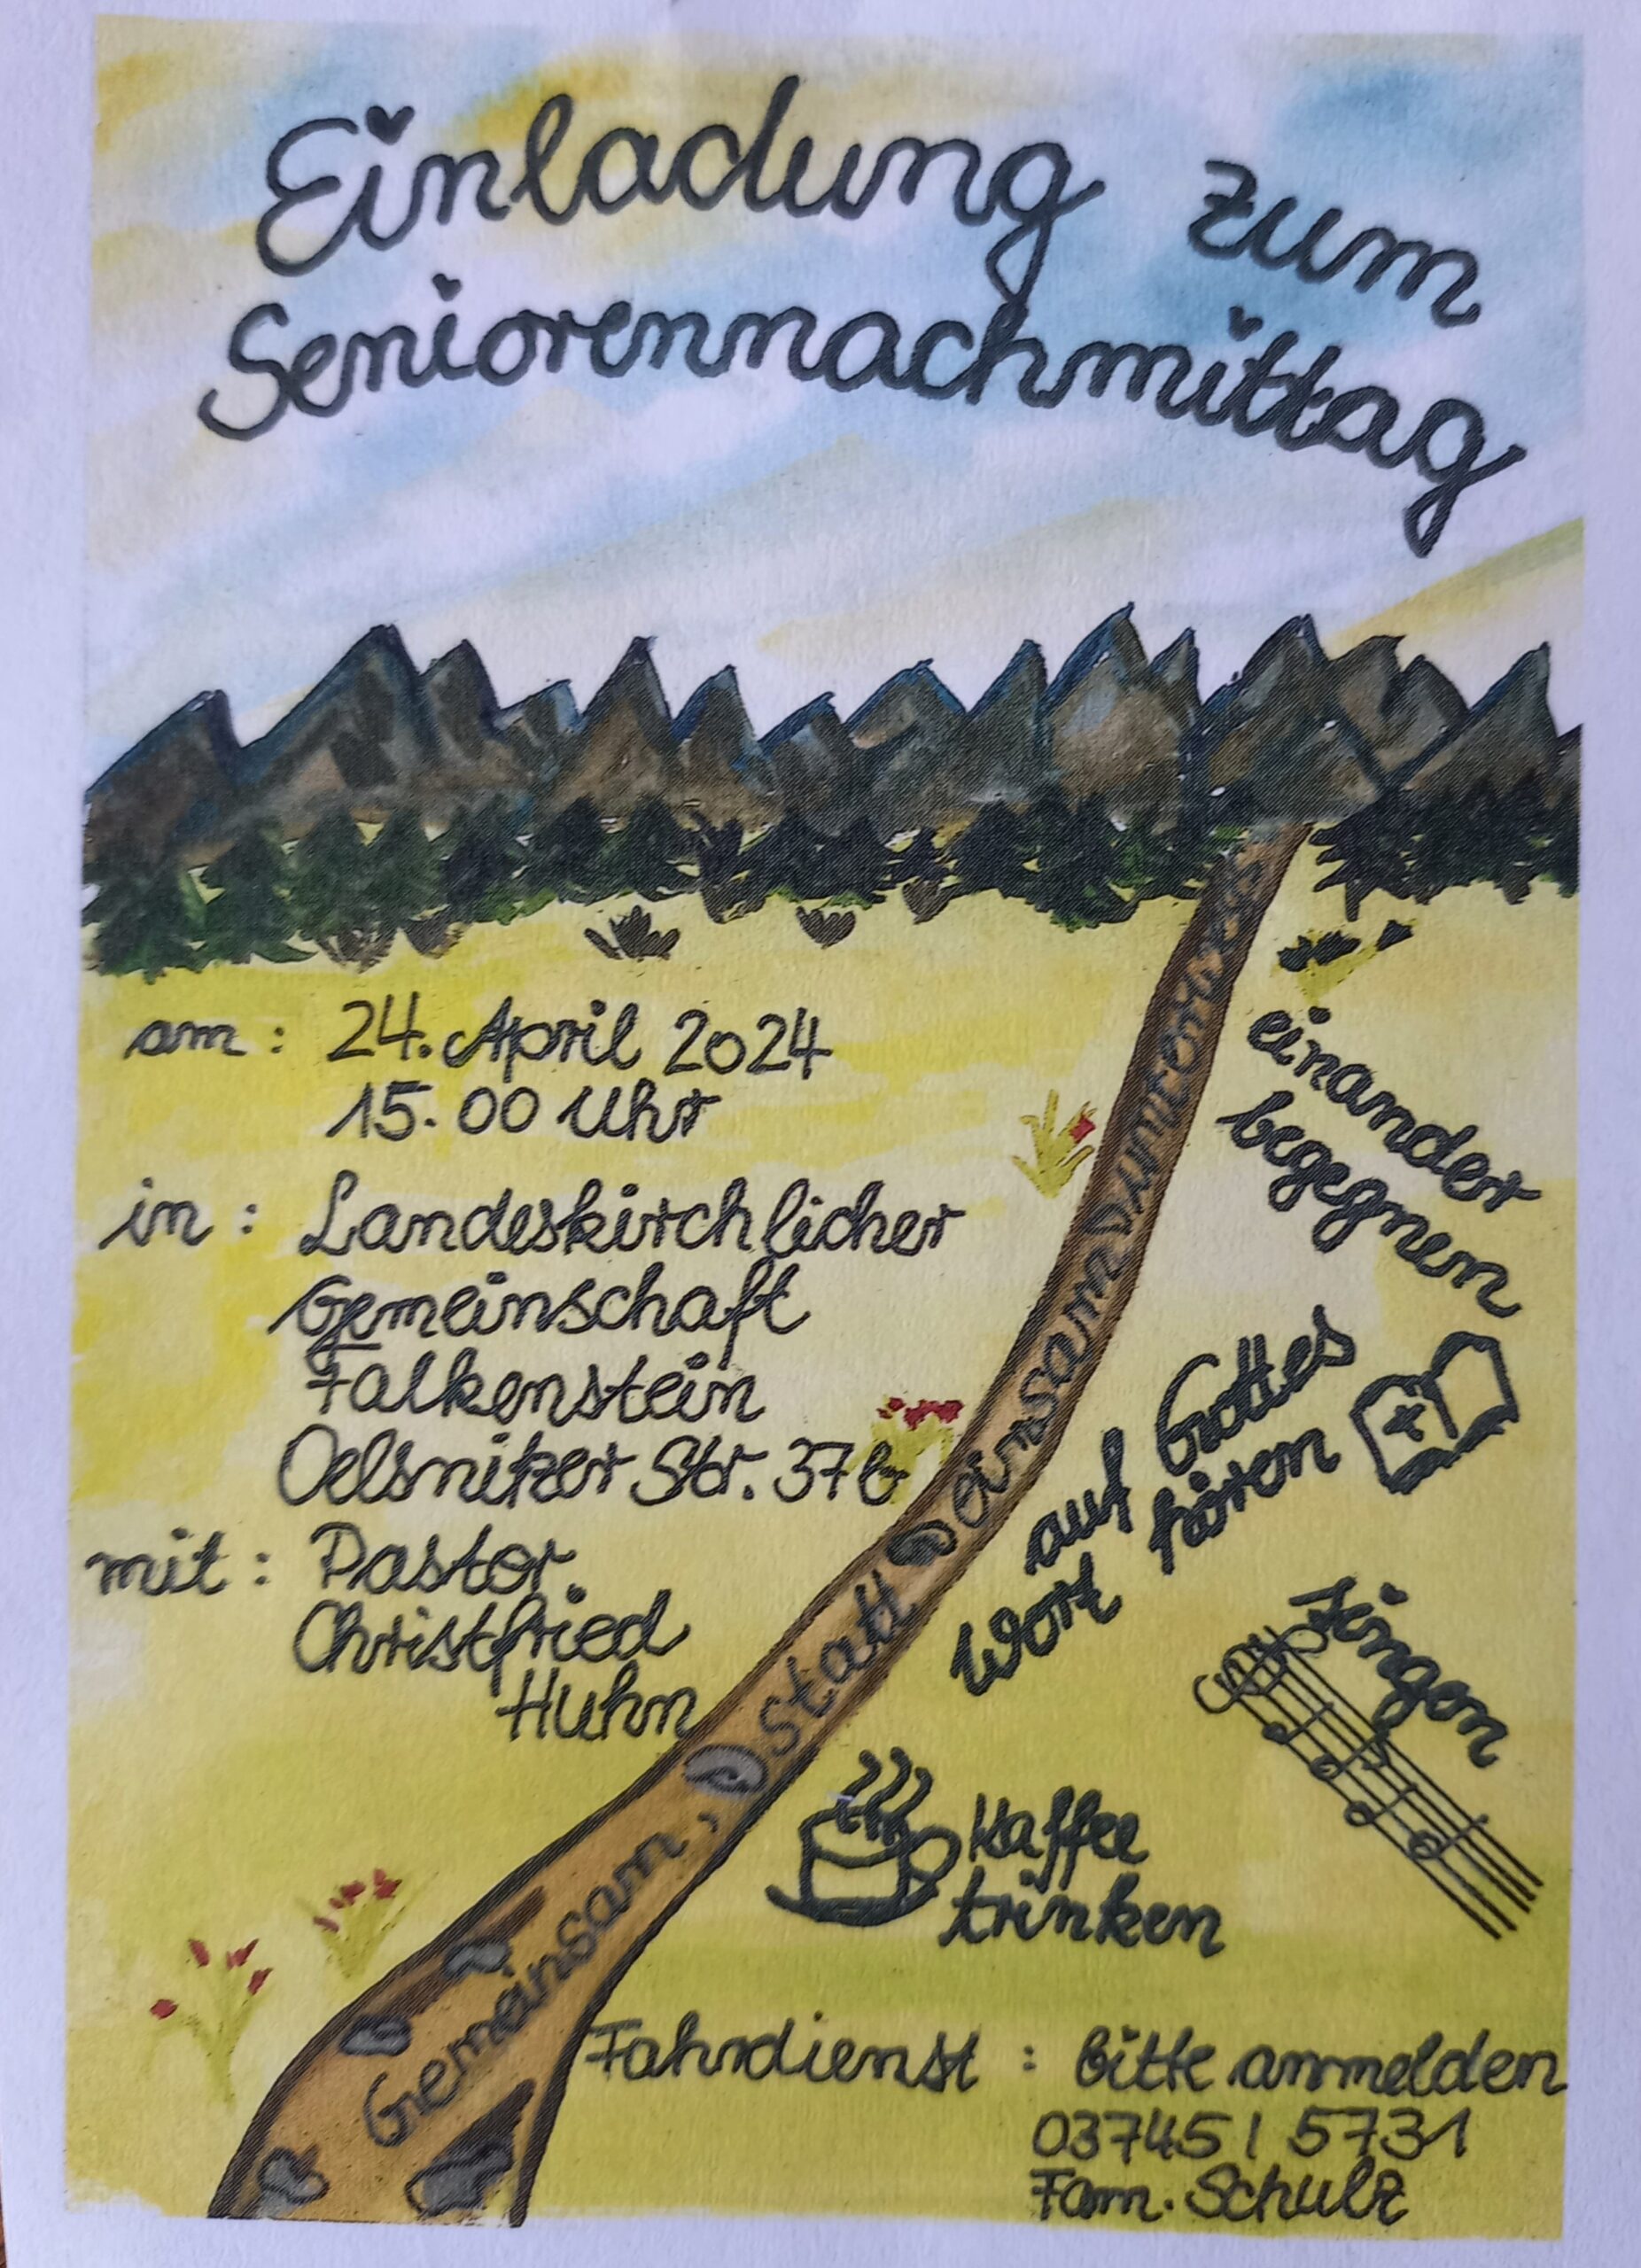 Einladung zum
Seniorennachmittag
am: 24. April 2024
15.00 Uhr
in: Landeskirchlicher
Gemeinschaft
Falkenstein
Oelsnitzer Str. 37b
mit: Pastor
Christfried
Huhn
Gemeinsam, statt einsam unterwegs
einander
begegnen
auf Gottes
Wort hören
singen
Kaffee
trinken
Fahrdienst: bitte anmelden
03745 / 5731
Fam. Schulz